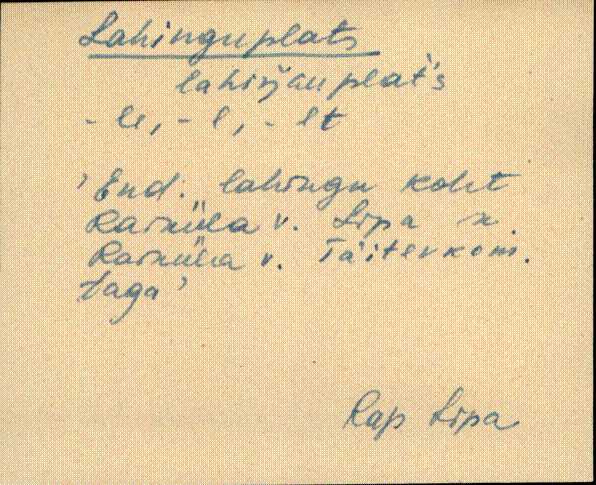 Lahinguplats
lahiŋguplat's
- le, - l, - lt
'End. lahingu koht
Raiküla v. Lipa k.
Raiküla v. Täitevkom.
taga'
Rap Lipa